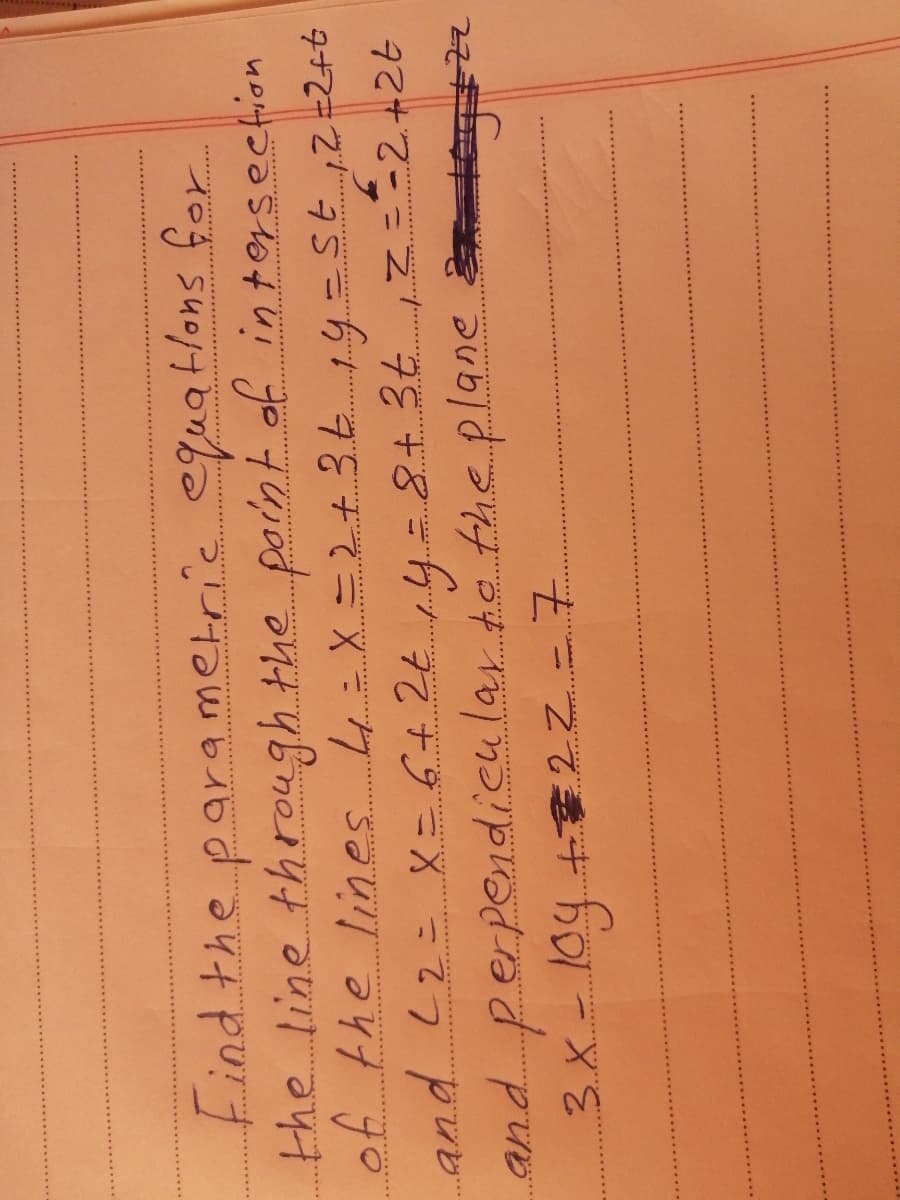 Find the parametric equations for
the line through the point of intersection
of the lines L1 = x = 2+3t, y = 5t, z = 2+t
and L2 = x = 6+2t, y = 8+3t, z = -2+2t
and perpendicular to the plane
3x - 10y + 2z = 7